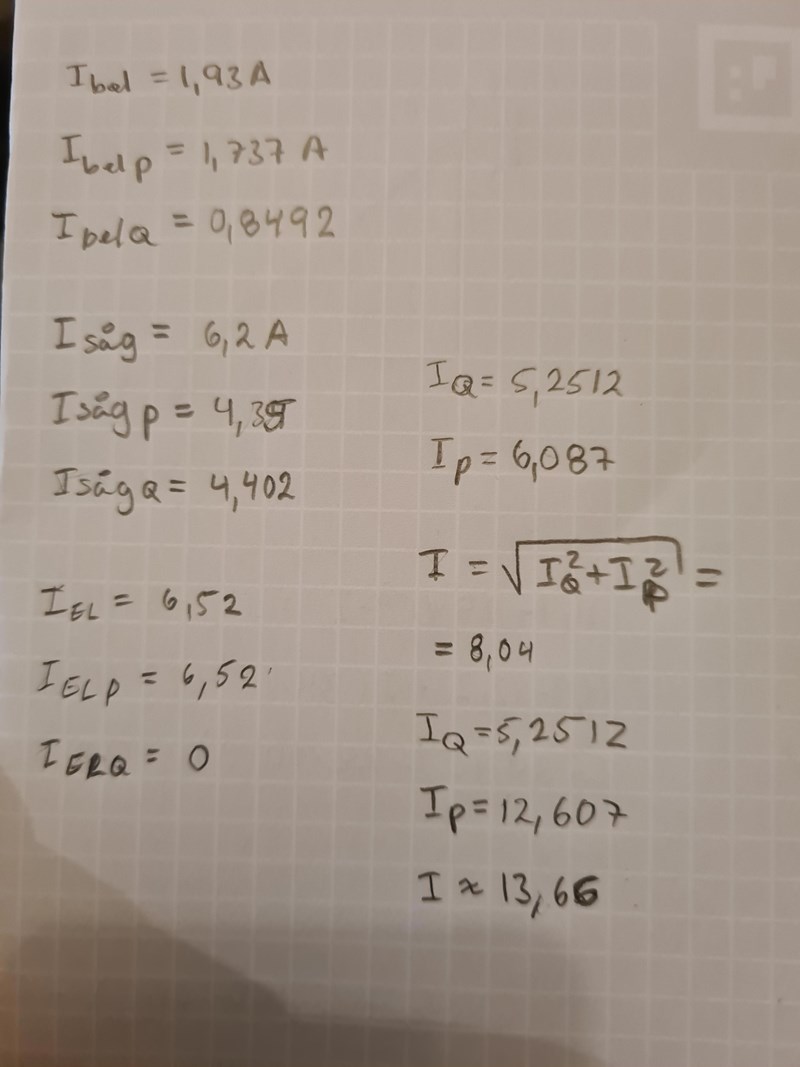 I bel = 1,93 A
I bel p = 1,737 A
I bel Q = 0,8492
I såg = 6,2 A
I såg p = 4,35
I såg Q = 4,402
I EL = 6,52
I EL P = 6,52
I ERQ = 0
I Q = 5,2512
I p = 6,087
I = √(I Q² + I P²) =
= 8,04
I Q = 5,2512
I p = 12,607
I ≈ 13,66